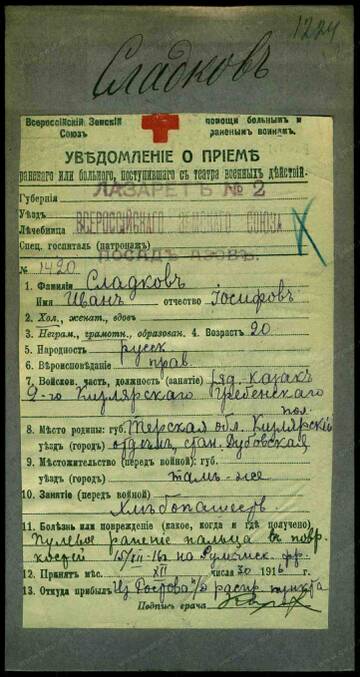 1224
Сладковъ
Всероссійскій Земскій
Союзъ
помощи больнымъ и
раненымъ воинамъ.
УВѢДОМЛЕНІЕ О ПРІЕМѢ
раненаго или больного, поступившаго съ театра военныхъ дѣйствій.
ЛАЗАРЕТЪ № 2
Губернія
Уѣздъ
ВСЕРОССІЙСКАГО ЗЕМСКАГО СОЮЗА
Лѣчебница
Спец. госпиталь (патронажъ)
ПОСАДЪ АЗОВЪ.
№ 1420
1. Фамилія Сладковъ
Имя Иванъ отчество Іосифовъ
2. Хол., женат., вдовъ
3. Неграм., грамотн., образован. 4. Возрастъ 20
5. Народность русск
6. Вѣроисповѣданіе прав.
7. Войсков. часть, должность (занятіе) ряд. казакъ
2-го Кизлярскаго Гребенскаго
пол.
8. Мѣсто родины: губ. Терская обл. Кизлярскій
уѣздъ (городъ) отдѣлъ, стан. Дубовская
9. Мѣстожительство (передъ войной): губ.
уѣздъ (городъ) тамъ-же
10. Занятіе (передъ войной)
Хлѣбопашество
11. Болѣзнь или поврежденіе (какое, когда и гдѣ получено)
Пулевое раненіе пальца съ повр.
костей 15/XII-16г на Румынск. фр.
12. Принятъ мѣс. XII числа 30 1916 г.
13. Откуда прибылъ Из Ростова н/Д распр. пункта
Подпись врача